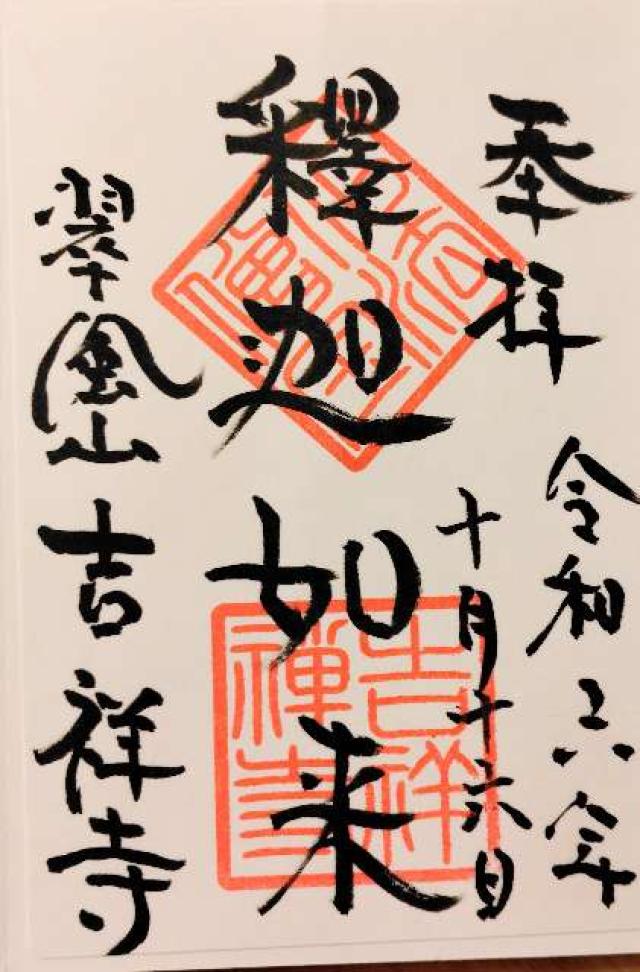 奉拝
令和六年
十月十六日
釋迦如来
翠風山吉祥寺
吉祥禅寺